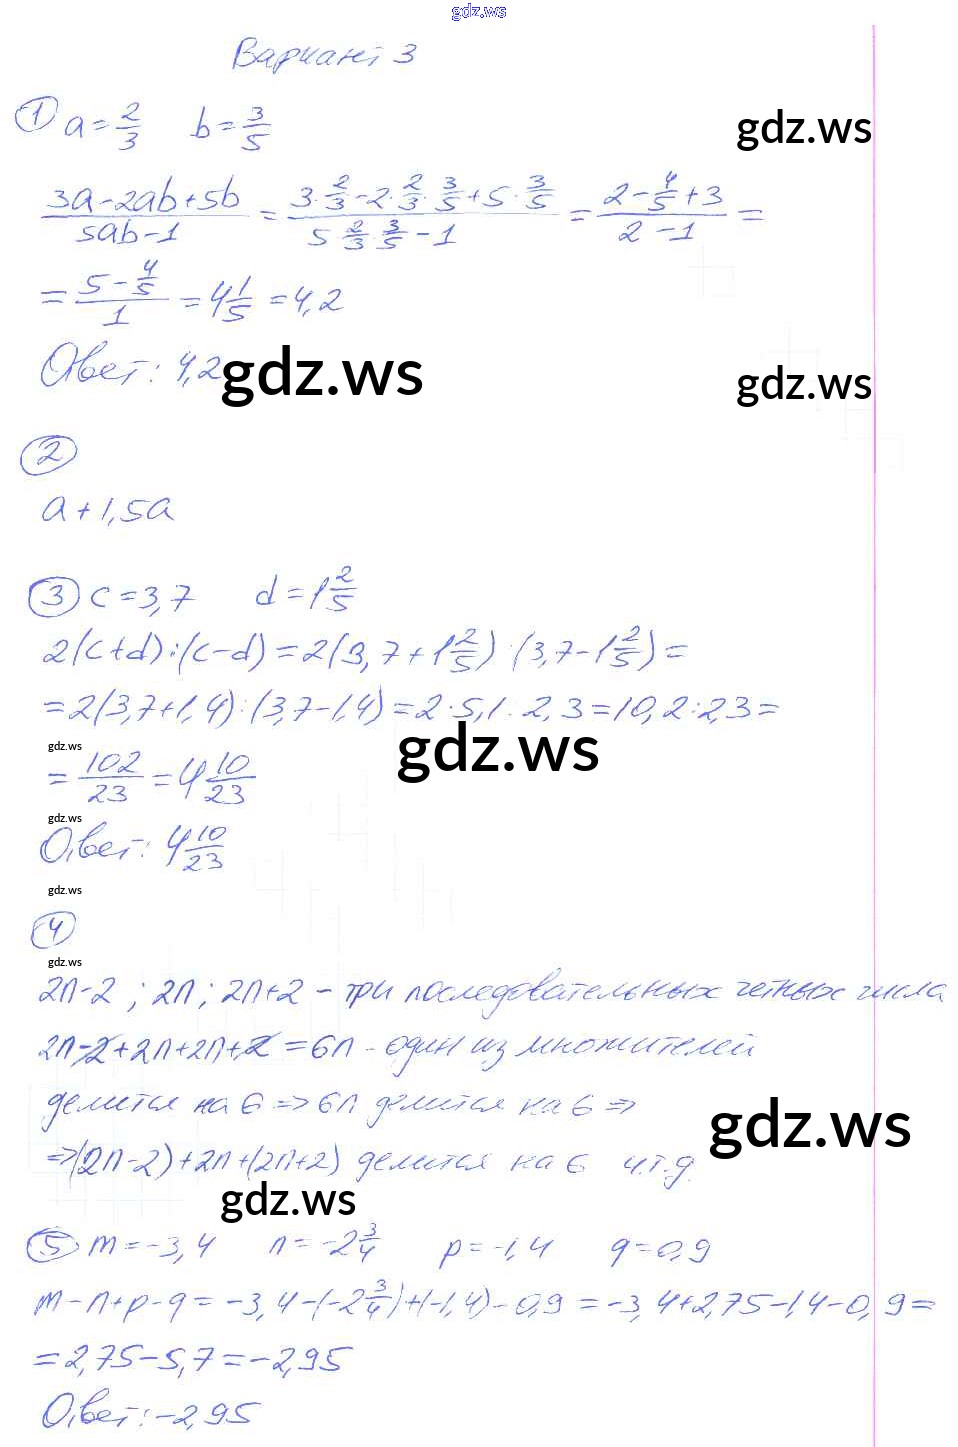 gdz.ws
Вариант 3
① a = 2/3   b = 3/5
gdz.ws
(3a - 2ab + 5b)/(5ab - 1) = (3·2/3 - 2·2/3·3/5 + 5·3/5)/(5 2/3·3/5 - 1) = (2 - 4/5 + 3)/(2 - 1) =
= (5 - 4/5)/1 = 4 1/5 = 4,2
Ответ: 4,2
gdz.ws
gdz.ws
②
a + 1,5a
③ c = 3,7   d = 1 2/5
2(c+d):(c-d) = 2(3,7 + 1 2/5) : (3,7 - 1 2/5) =
= 2(3,7+1,4):(3,7-1,4) = 2·5,1:2,3 = 10,2:2,3 =
gdz.ws
gdz.ws
= 102/23 = 4 10/23
gdz.ws
Ответ: 4 10/23
gdz.ws
④
gdz.ws
2n-2; 2n; 2n+2 - три последовательных четных числа
2n-2+2n+2n+2 = 6n - один из множителей
делится на 6 => 6n делится на 6 =>
gdz.ws
=> (2n-2)+2n+(2n+2) делится на 6 ч.т.д.
gdz.ws
⑤ m = -3,4   n = -2 3/4   p = -1,4   q = 0,9
m - n + p - q = -3,4 - (-2 3/4) + (-1,4) - 0,9 = -3,4 + 2,75 - 1,4 - 0,9 =
= 2,75 - 5,7 = -2,95
Ответ: -2,95